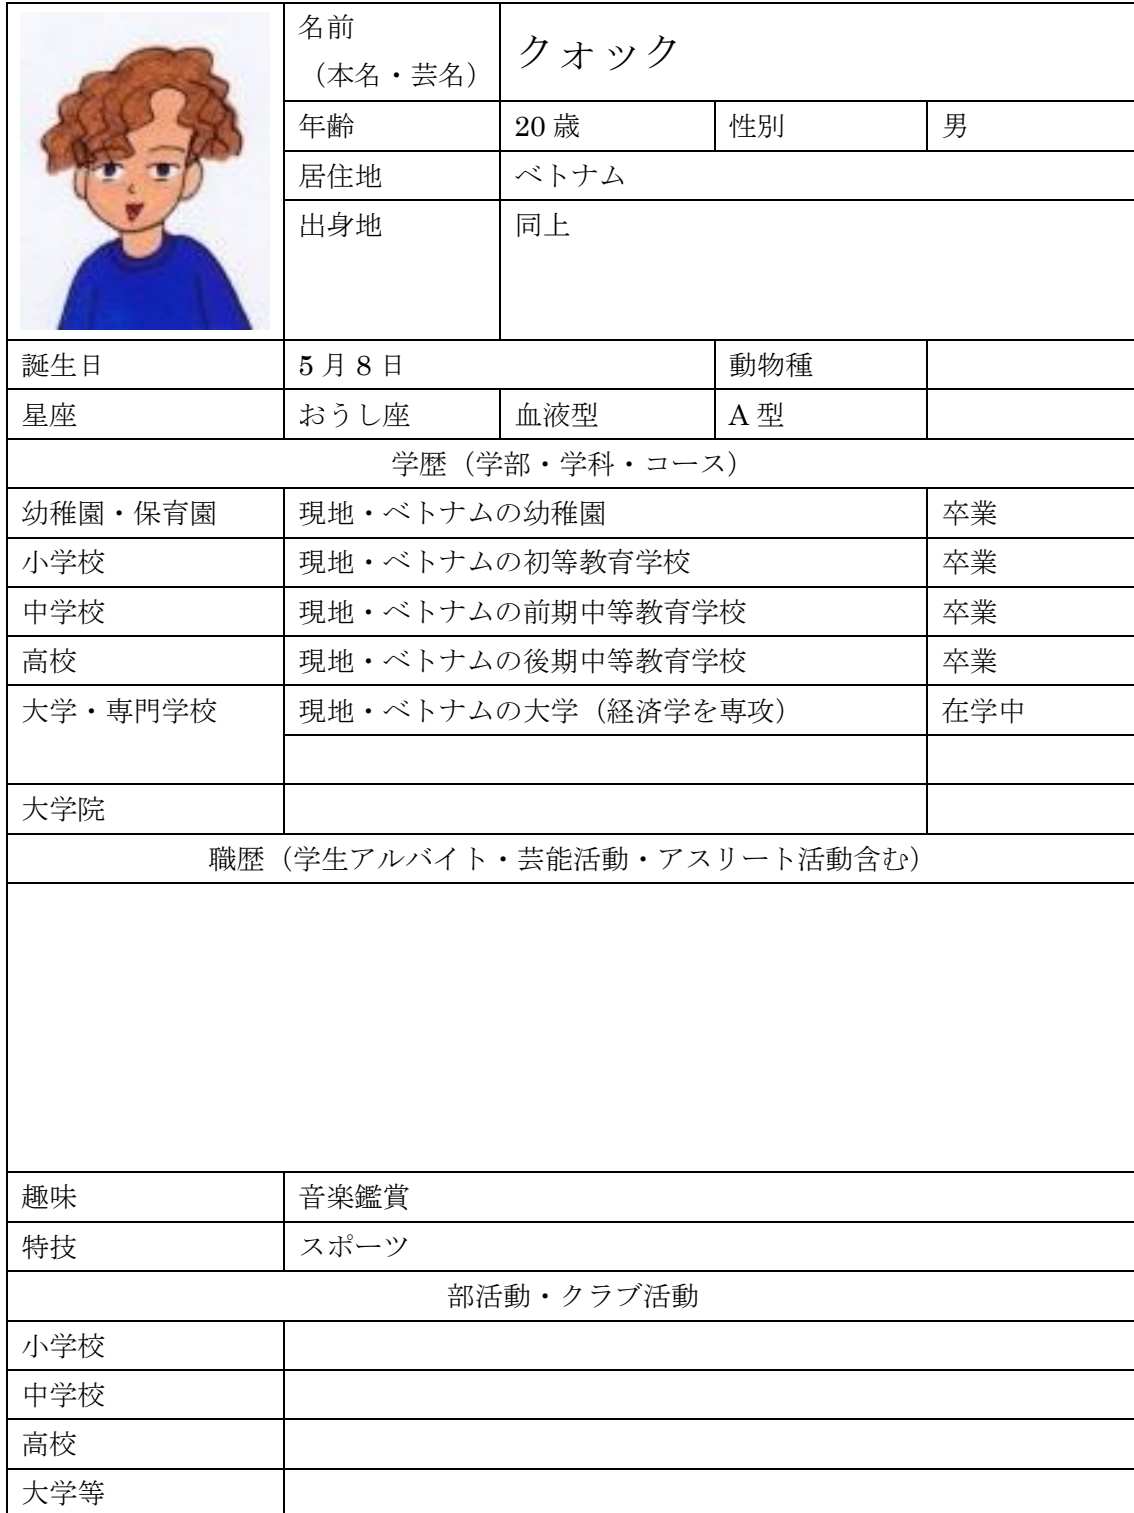 名前
（本名・芸名）
クォック
年齢 20歳 性別 男
居住地 ベトナム
出身地 同上
誕生日 5月8日 動物種
星座 おうし座 血液型 A型
学歴（学部・学科・コース）
幼稚園・保育園 現地・ベトナムの幼稚園 卒業
小学校 現地・ベトナムの初等教育学校 卒業
中学校 現地・ベトナムの前期中等教育学校 卒業
高校 現地・ベトナムの後期中等教育学校 卒業
大学・専門学校 現地・ベトナムの大学（経済学を専攻） 在学中
大学院
職歴（学生アルバイト・芸能活動・アスリート活動含む）
趣味 音楽鑑賞
特技 スポーツ
部活動・クラブ活動
小学校
中学校
高校
大学等